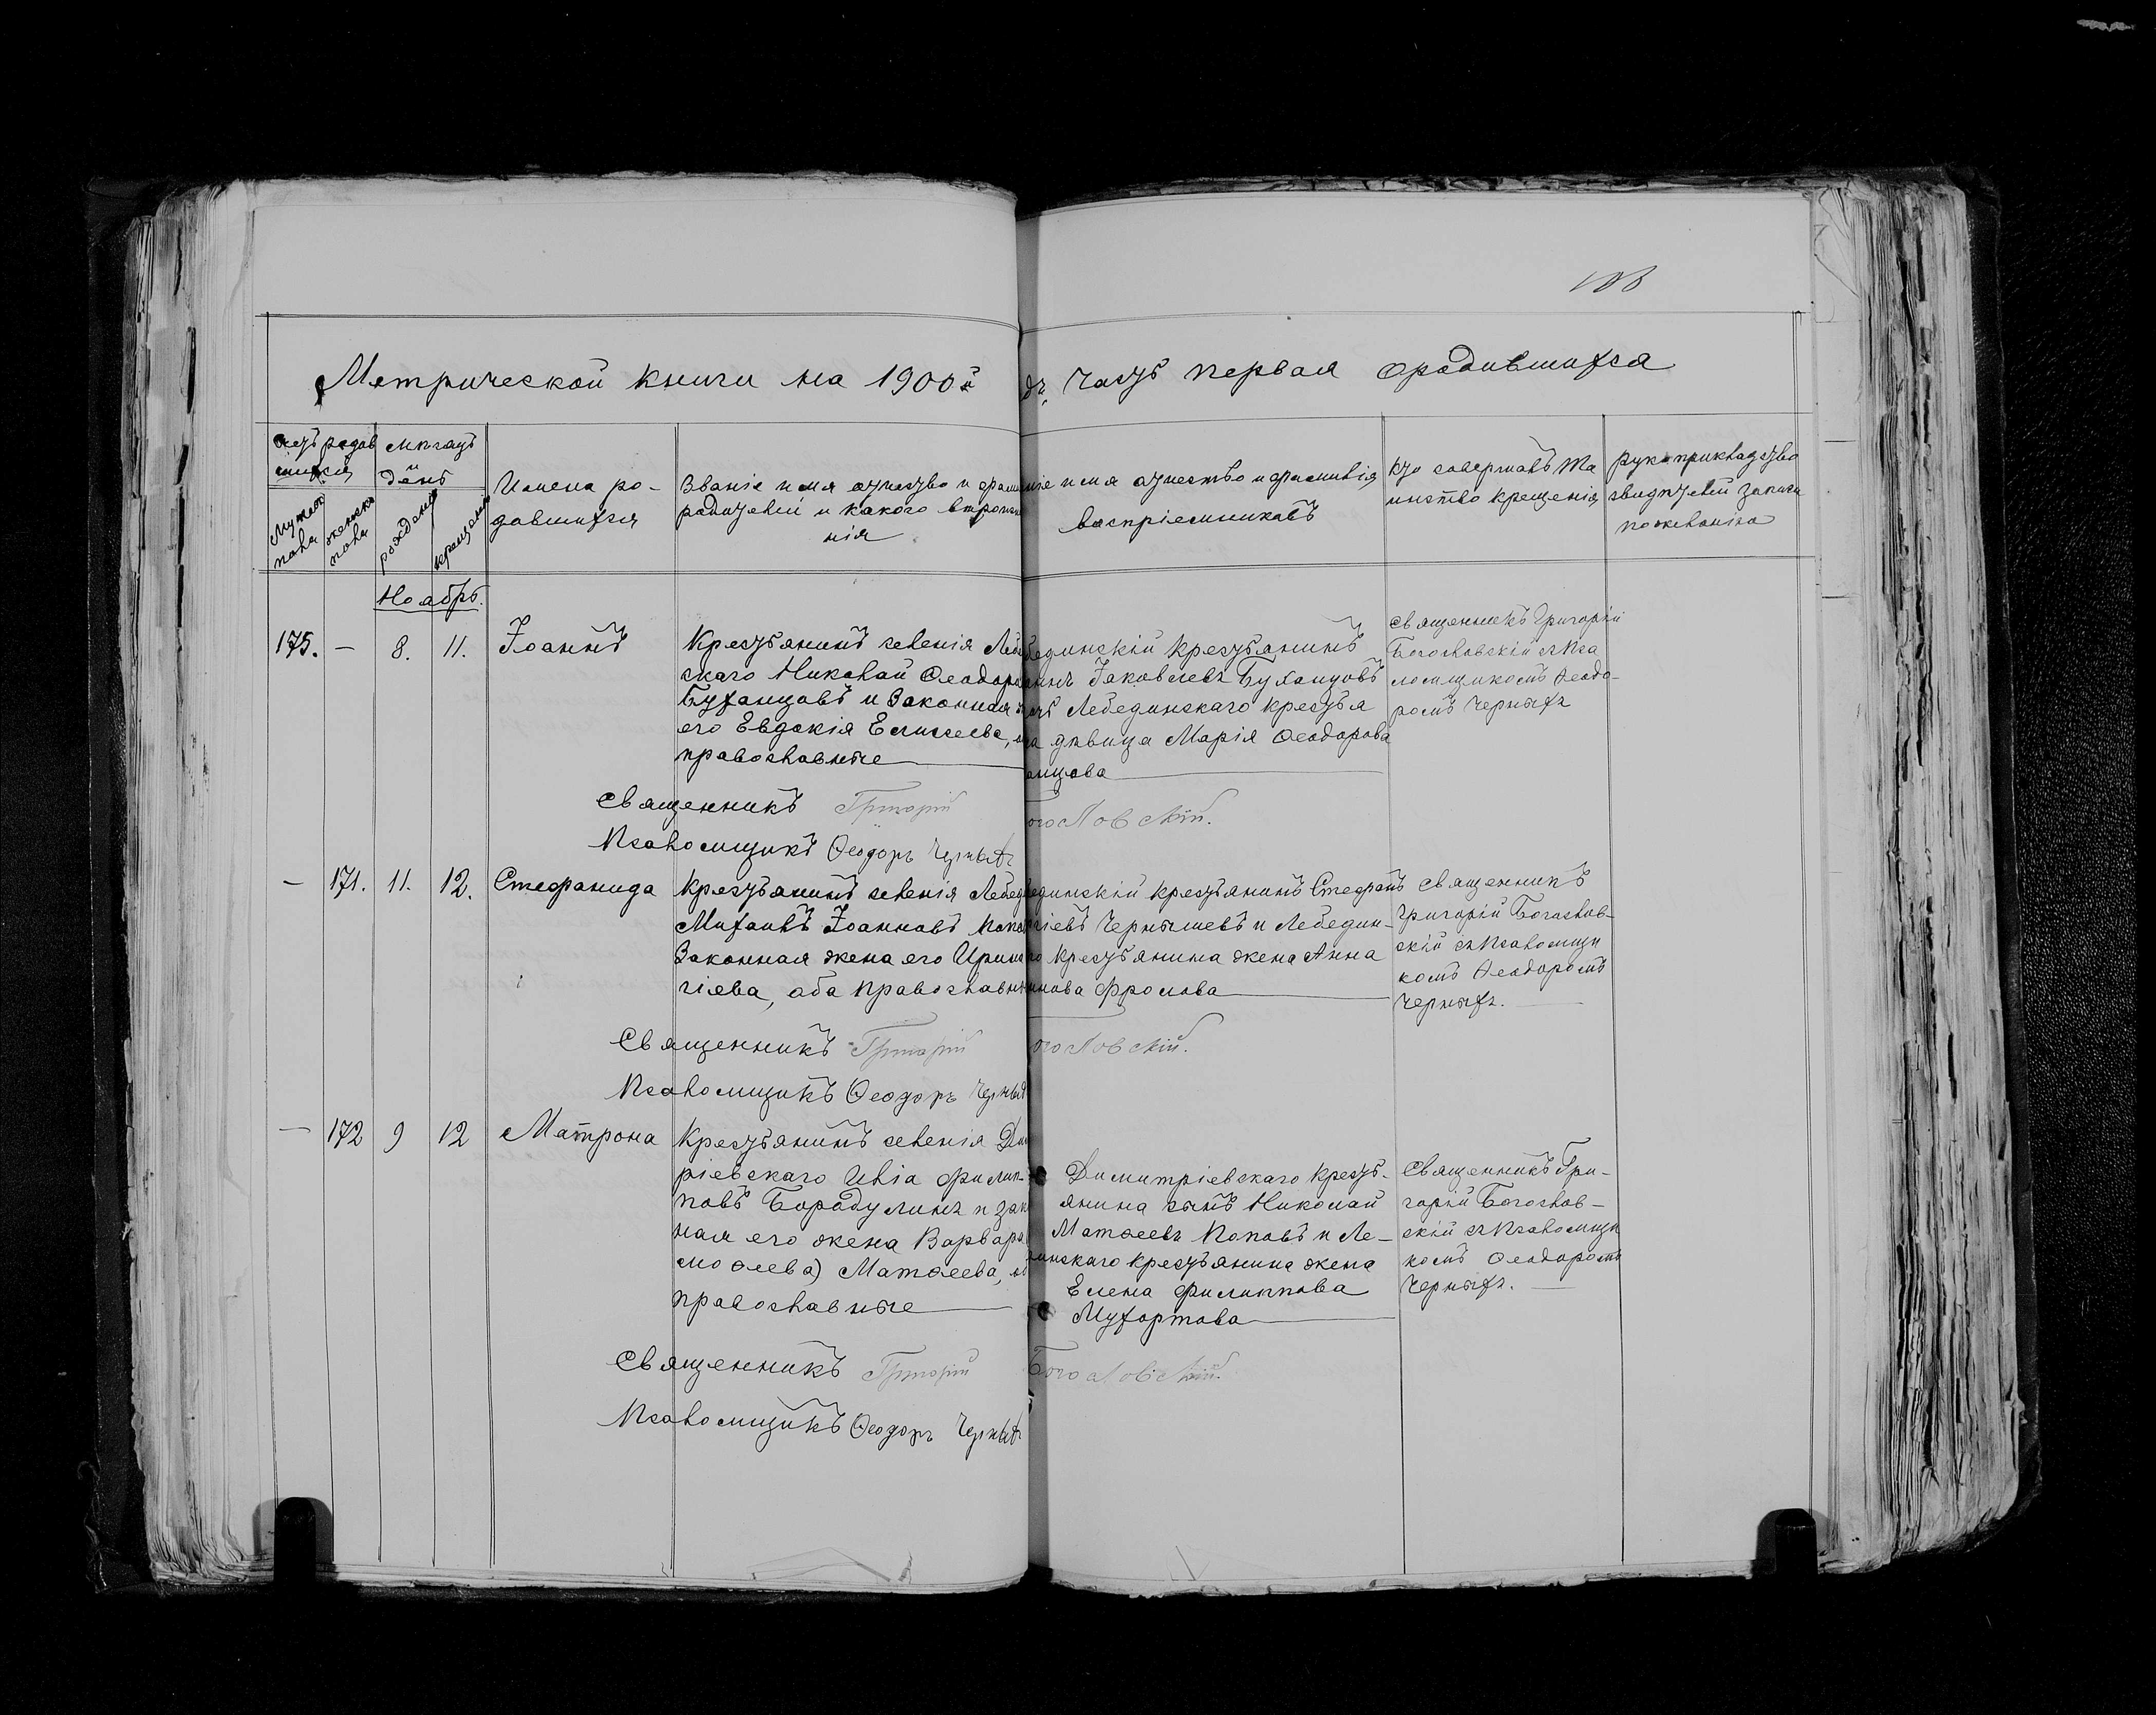 Метрической книги на 1900й
часть первая о родившихся
Мужска пола
женска пола
Месяцъ и день
рожденія
крещенія
Имена ро-
давшихся
Званіе имя отчество и
родителей и какого вѣроиспо
нія
имя отчество и фамилія
воспріемниковъ
Кто совершалъ та
инство крещенія
Рукоприкладство
свидѣтелей записи
по желанію
Ноябрь.
175. — 8. 11. Іоаннъ
Крестьянинъ селенія
скаго Николай Ѳеодоро
Буханцовъ и законная
его Евдокія Елисеева,
православные
единскій крестьянинъ
Іаковлевъ Буханцовъ
Лебединскаго крестья
дѣвица Марія Ѳеодорова
анцова
Священникъ Григорій
Богословскій съ Пса
ломщикомъ Ѳеодо-
ромъ Черныхъ
Священникъ Григорій
огословскій.
Псаломщикъ Ѳеодоръ Черныхъ
— 171. 11. 12. Стефанида
Крестьянинъ селенія Лебед
Михаилъ Іоанновъ Попо
Законная жена его Ирина
гіева, оба православны
единскій крестьянинъ Стефанъ
гіевъ Чернышевъ и Лебедин-
го крестьянина жена Анна
нова Фролова
Священникъ
Григорій Богослов-
скій съ Псаломщи
комъ Ѳеодоромъ
Черныхъ.
Священникъ Григорій
огословскій.
Псаломщикъ Ѳеодоръ Черных
— 172 9 12 Матрона
Крестьянинъ селенія Ди
ріевскаго Илія Филип-
повъ Бородулинъ и зак
ная его жена Варвара
моѳеева) Матѳеева, об
православные
Димитріевскаго крест-
янина сынъ Николай
Матѳеевъ Поповъ и Ле-
инскаго крестьянина жена
Елена Филиппова
Мухортова
Священникъ Гри-
горій Богослов-
скій съ Псаломщи
комъ Ѳеодоромъ
Черныхъ.
Священникъ Григорій
Богословскій.
Псаломщикъ Ѳеодоръ Черныхъ